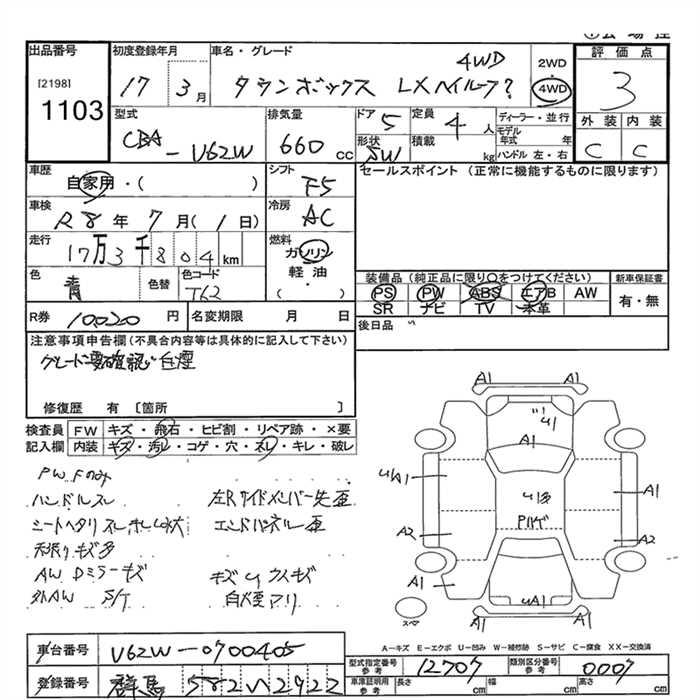 出品番号
[2198]
1103
初度登録年月
17 3月
車名・グレード
4WD
タウンボックス LXハイルーフ?
2WD
4WD
評価点
3
外装 内装
C C
型式
CBA
-U62W
排気量
660 cc
ドア 5
形状 SW
定員 4人
積載 kg
ディーラー・並行
モデル
年式 年
ハンドル 左・右
車歴
自家用・( )
シフト
F5
セールスポイント (正常に機能するものに限ります)
車検
R8年7月(1日)
冷房
AC
走行
17万3千804km
燃料
ガソリン
軽油
( )
色
青
色替
色コード
T62
装備品(純正品に限り○をつけてください)
PS PW ABS エアB AW
SR ナビ TV 本革
新車保証書
有・無
R券 10020円
名変期限 月 日
後日品
注意事項申告欄(不具合内容等は具体的に記入して下さい)
グレード要確認 白煙
修復歴 有 〔箇所 〕
検査員 FW キズ・飛石・ヒビ割・リペア跡・×要
記入欄 内装 キズ・汚レ・コゲ・穴・スレ・キレ・破レ
PW Fのみ
ハンドルスレ
シートヘタリ スレ
天張りキズ多
AW Dミラーキズ
外AW S/T
左Rサイドメンバー先歪
エンドパネル歪
キズ U ウスキズ
白煙アリ
A1 A1
U1
A1
U/A1
U13
A1
Pハゲ
A2
A2
A1
UA1
A1
スペア
A1 A1
A-キズ E-エクボ U-凹み W-補修跡 S-サビ C-腐食 XX-交換済
車台番号 U62W-0700405
登録番号 群馬 582い2922
型式指定番号
参考
12707
類別区分番号
参考
0007
車庫証明用
参考
長さ cm 幅 cm 高さ cm